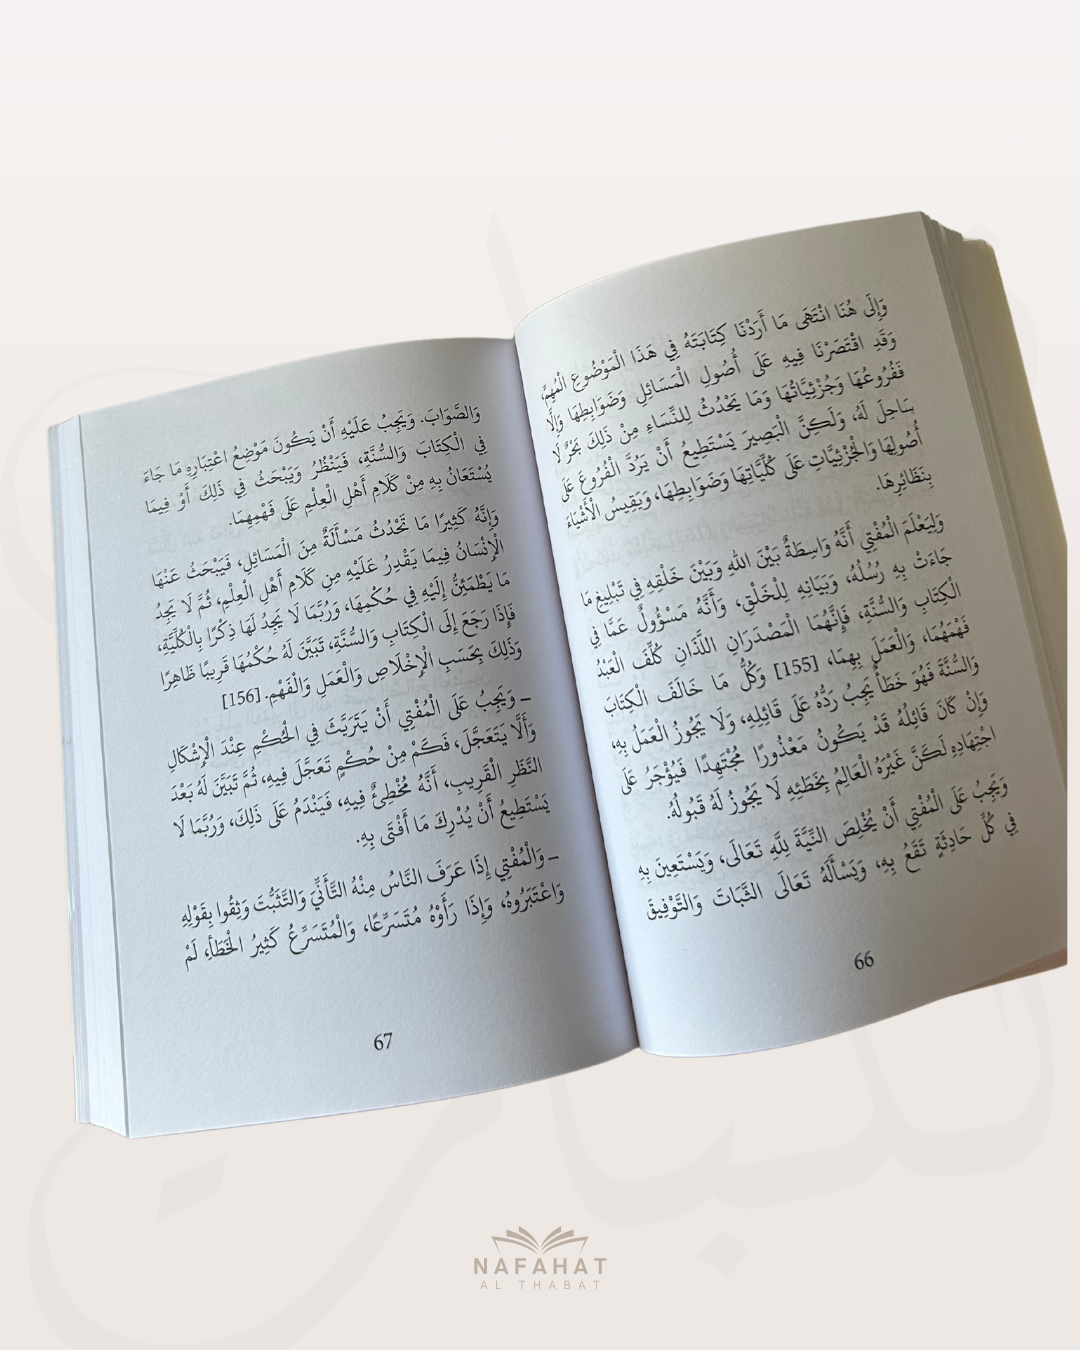 وَإِلَى هُنَا انْتَهَى مَا أَرَدْنَا كِتَابَتَهُ فِي هَذَا الْمَوْضُوعِ الْمُهِمِّ،
وَقَدِ اقْتَصَرْنَا فِيهِ عَلَى أُصُولِ الْمَسَائِلِ وَضَوَابِطِهَا وَإِلَّا
فَفُرُوعُهَا وَجُزْئِيَّاتُهَا وَمَا يَحْدُثُ لِلنِّسَاءِ مِنْ ذَلِكَ بَحْرٌ لَا
سَاحِلَ لَهُ، وَلَكِنَّ الْبَصِيرَ يَسْتَطِيعُ أَنْ يَرُدَّ الْفُرُوعَ عَلَى
أُصُولِهَا وَالْجُزْئِيَّاتِ عَلَى كُلِّيَّاتِهَا وَضَوَابِطِهَا، وَيَقِيسُ الْأَشْيَاءَ
بِنَظَائِرِهَا.
وَلِيَعْلَمَ الْمُفْتِي أَنَّهُ وَاسِطَةٌ بَيْنَ اللهِ وَبَيْنَ خَلْقِهِ فِي تَبْلِيغِ مَا
جَاءَتْ بِهِ رُسُلُهُ، وَبَيَانِهِ لِلْخَلْقِ، وَأَنَّهُ مَسْؤُولٌ عَمَّا فِي
الْكِتَابِ وَالسُّنَّةِ، فَإِنَّهُمَا الْمَصْدَرَانِ اللَّذَانِ كُلِّفَ الْعَبْدُ
فَهْمَهُمَا، وَالْعَمَلَ بِهِمَا، [155] وَكُلُّ مَا خَالَفَ الْكِتَابَ
وَالسُّنَّةَ فَهُوَ خَطَأٌ يَجِبُ رَدُّهُ عَلَى قَائِلِهِ، وَلَا يَجُوزُ الْعَمَلُ بِهِ،
وَإِنْ كَانَ قَائِلُهُ قَدْ يَكُونُ مَعْذُورًا مُجْتَهِدًا فَيُؤْجَرُ عَلَى
اجْتِهَادِهِ لَكِنَّ غَيْرَهُ الْعَالِمَ بِخَطَئِهِ لَا يَجُوزُ لَهُ قَبُولُهُ.
وَيَجِبُ عَلَى الْمُفْتِي أَنْ يُخْلِصَ النِّيَّةَ لِلَّهِ تَعَالَى، وَيَسْتَعِينَ بِهِ
فِي كُلِّ حَادِثَةٍ تَقَعُ بِهِ، وَيَسْأَلَهُ تَعَالَى الثَّبَاتَ وَالتَّوْفِيقَ
66
وَالصَّوَابَ. وَيَجِبُ عَلَيْهِ أَنْ يَكُونَ مَوْضِعُ اعْتِبَارِهِ مَا جَاءَ
فِي الْكِتَابِ وَالسُّنَّةِ، فَيَنْظُرُ وَيَبْحَثُ فِي ذَلِكَ أَوْ فِيمَا
يُسْتَعَانُ بِهِ مِنْ كَلَامِ أَهْلِ الْعِلْمِ عَلَى فَهْمِهِمَا.
وَإِنَّهُ كَثِيرًا مَا تَحْدُثُ مَسْأَلَةٌ مِنَ الْمَسَائِلِ، فَيَبْحَثُ عَنْهَا
الْإِنْسَانُ فِيمَا يَقْدِرُ عَلَيْهِ مِن كَلَامِ أَهْلِ الْعِلْمِ، ثُمَّ لَا يَجِدُ
مَا يَطْمَئِنُّ إِلَيْهِ فِي حُكْمِهَا، وَرُبَّمَا لَا يَجِدُ لَهَا ذِكْرًا بِالْكُلِّيَّةِ،
فَإِذَا رَجَعَ إِلَى الْكِتَابِ وَالسُّنَّةِ، تَبَيَّنَ لَهُ حُكْمُهَا قَرِيبًا ظَاهِرًا
وَذَلِكَ بِحَسَبِ الْإِخْلَاصِ وَالْعَمَلِ وَالْفَهْمِ. [156]
– وَيَجِبُ عَلَى الْمُفْتِي أَنْ يَتَرَيَّثَ فِي الْحُكْمِ عِنْدَ الْإِشْكَالِ
وَأَلَّا يَتَعَجَّلَ، فَكَمْ مِنْ حُكْمٍ تَعَجَّلَ فِيهِ، ثُمَّ تَبَيَّنَ لَهُ بَعْدَ
النَّظَرِ الْقَرِيبِ، أَنَّهُ مُخْطِئٌ فِيهِ، فَيَنْدَمُ عَلَى ذَلِكَ، وَرُبَّمَا لَا
يَسْتَطِيعُ أَنْ يُدْرِكَ مَا أَفْتَى بِهِ.
– وَالْمُفْتِي إِذَا عَرَفَ النَّاسُ مِنْهُ التَّأَنِّيَ وَالتَّثَبُّتَ وَثِقُوا بِقَوْلِهِ
وَاعْتَبَرُوهُ، وَإِذَا رَأَوْهُ مُتَسَرِّعًا، وَالْمُتَسَرِّعُ كَثِيرُ الْخَطَأِ، لَمْ
67
NAFAHAT
AL THABAT